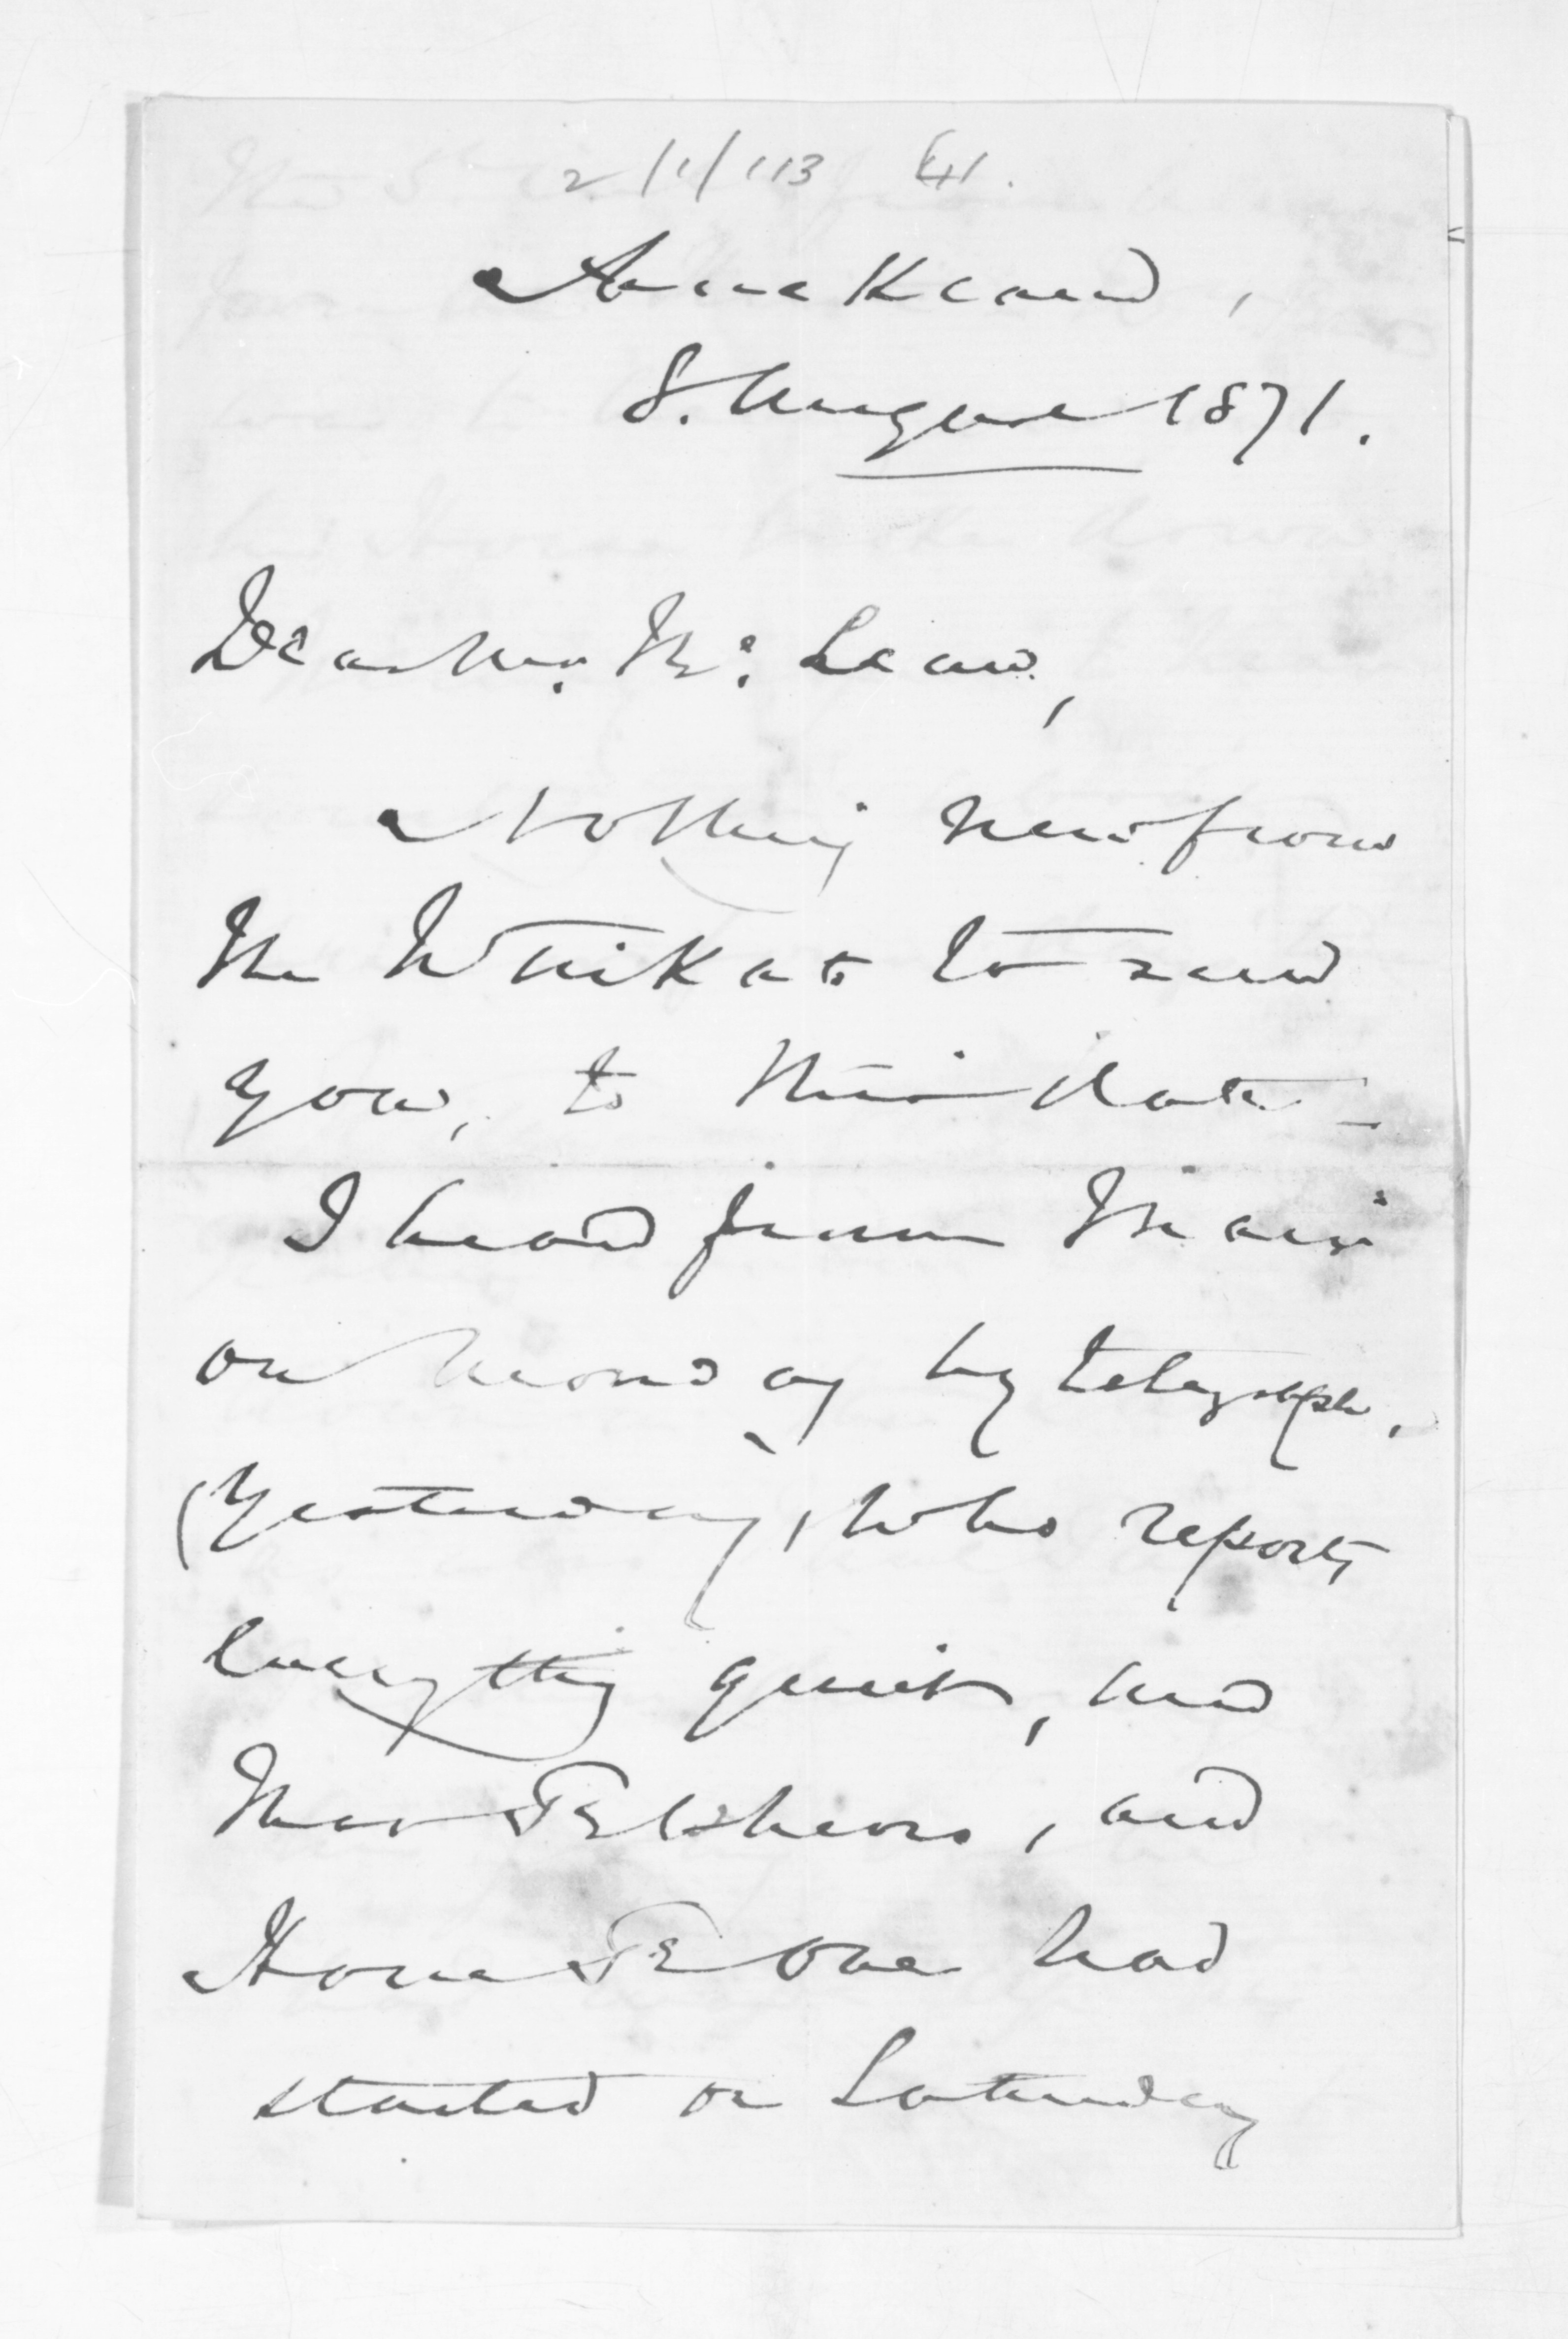 2/1/113 41.
Auckland,
8. August 1871.
Dear Mr. Mc: Lean,
Nothing new from
the Waikato to send
you, to this date _
I heard from Mair
on Monday by telegraph,
(yesterday, who reports
Everything quiet, and
that Te Wheoro, and
Hone Te One had
started on Saturday